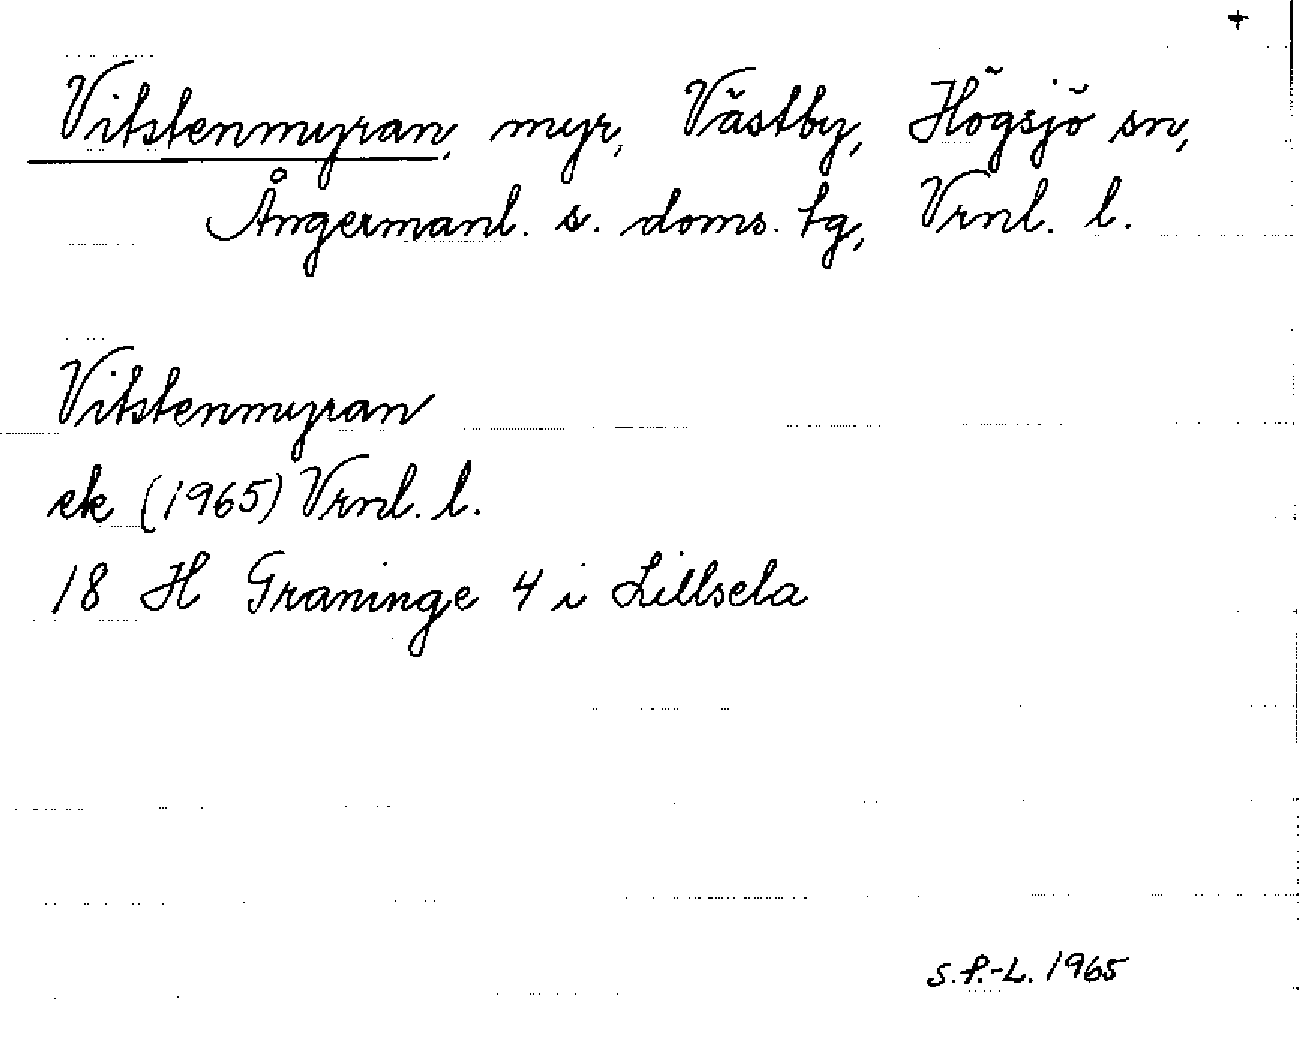 +
Vitstenmyran, myr, Västby, Högsjö sn,
Ångermanl. s. doms. tg, Vrnl. l.
Vitstenmyran
ek (1965) Vrnl. l.
18 H Graninge 4 i Lillsela
S.P.-L. 1965